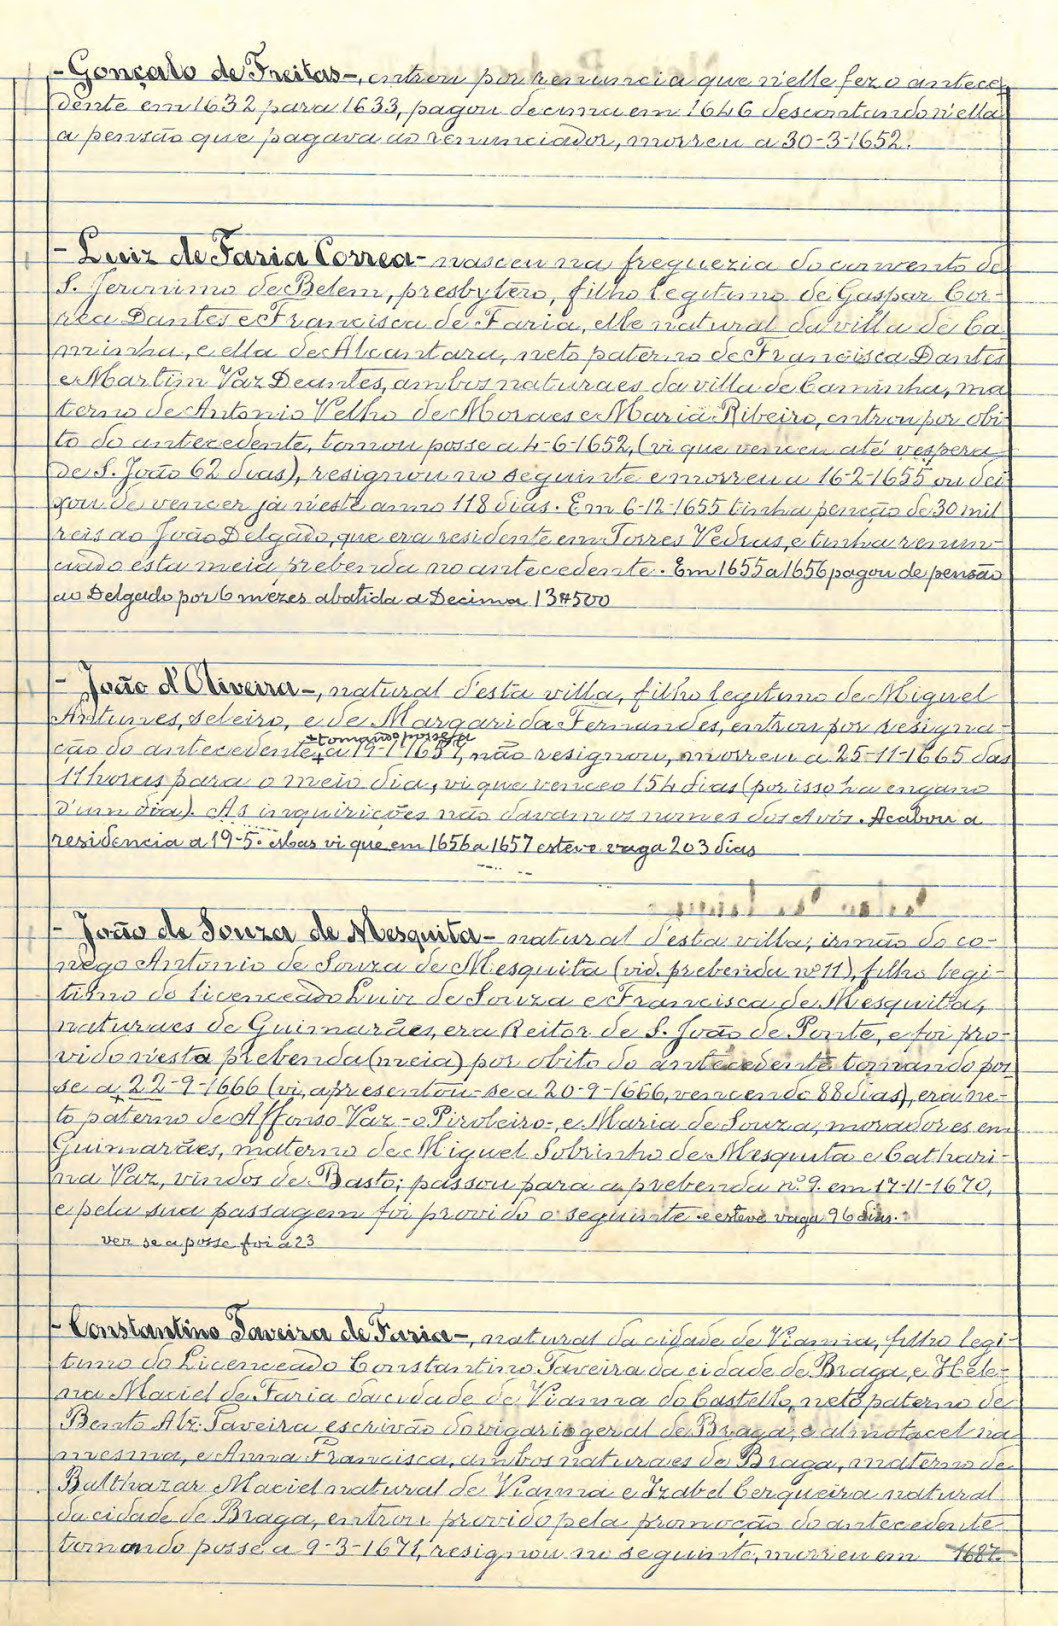 - Gonçalo de Freitas -, entrou por renuncia que n'elle fez o antece-
dente em 1632 para 1633, pagou decima em 1646 descontando n'ella
a pensão que pagava ao renunciador, morreu a 30-3-1652.
- Luiz de Faria Correa - nasceu na freguezia do convento de
S. Jeronimo de Belem, presbytero, filho legitimo de Gaspar Cor-
rea Dantes e Francisca de Faria, elle natural da villa de Ca
minha, e ella de Alcantara, neto paterno de Francisca Dantes
e Martim Vaz Deantes, ambos naturaes da villa de Caminha, ma
terno de Antonio Velho de Moraes e Maria Ribeiro, entrou por obi-
to do antecedente, tomou posse a 4-6-1652, (vi que venceu até vespera
de S. João 62 dias), resignou no seguinte e morreu a 16-2-1655 ou dei
xou de vencer já n'este anno 118 dias. Em 6-12-1655 tinha penção de 30 mil
reis ao João Delgado, que era residente em Torres Vedras, e tinha renun-
ciado esta meia prebenda no antecedente. Em 1655 a 1656 pagou de pensão
ao Delgado por 6 mezes abatida a Decima 13#500
- João d'Oliveira -, natural d'esta villa, filho legitimo de Miguel
Antunes, seleiro, e de Margarida Fernandes, entrou por resigna-
+ tomando posse já
ção do antecedente + a 19-1-1657, não resignou, morreu a 25-11-1665 das
11 horas para o meio dia, vi que venceo 154 dias (por isso ha engano
d'um dia). As inquirições não davam os nomes dos Avós. Acabou a
residencia a 19-5. Mas vi que em 1656 a 1657 esteve vaga 203 dias
- João de Souza de Mesquita - natural d'esta villa, irmão do co-
nego Antonio de Souza de Mesquita (vid. prebenda nº 11), filho legi-
timo do licenceado Luiz de Souza e Francisca de Mesquita,
naturaes de Guimarães, era Reitor de S. João de Ponte, e foi pro-
vido n'esta prebenda (meia) por obito do antecedente tomando pos-
se a + 22-9-1666 (vi, apresentou-se a 20-9-1666, vencendo 88 dias), era ne-
to paterno de Affonso Vaz - o Piroleiro -, e Maria de Souza, moradores em
Guimarães, materno de Miguel Sobrinho de Mesquita e Cathari-
na Vaz, vindos de Basto; passou para a prebenda nº 9 em 17-11-1670,
e pela sua passagem foi provido o seguinte e esteve vaga 96 dias.
ver se a posse foi a 23
- Constantino Taveira de Faria -, natural da cidade de Vianna, filho legi-
timo do Licenceado Constantino Taveira da cidade de Braga, e Hele-
na Maciel de Faria da cidade de Vianna do Castello, neto paterno de
Bento Alz. Taveira escrivão do vigario geral de Braga, e almotacel na
mesma, e Anna Francisca, ambos naturaes de Braga, materno de
Balthazar Maciel natural de Vianna e Izabel Cerqueira natural
da cidade de Braga, entrou provido pela promoção do antecedente
tomando posse a 9-3-1671, resignou no seguinte, morreu em 1687.